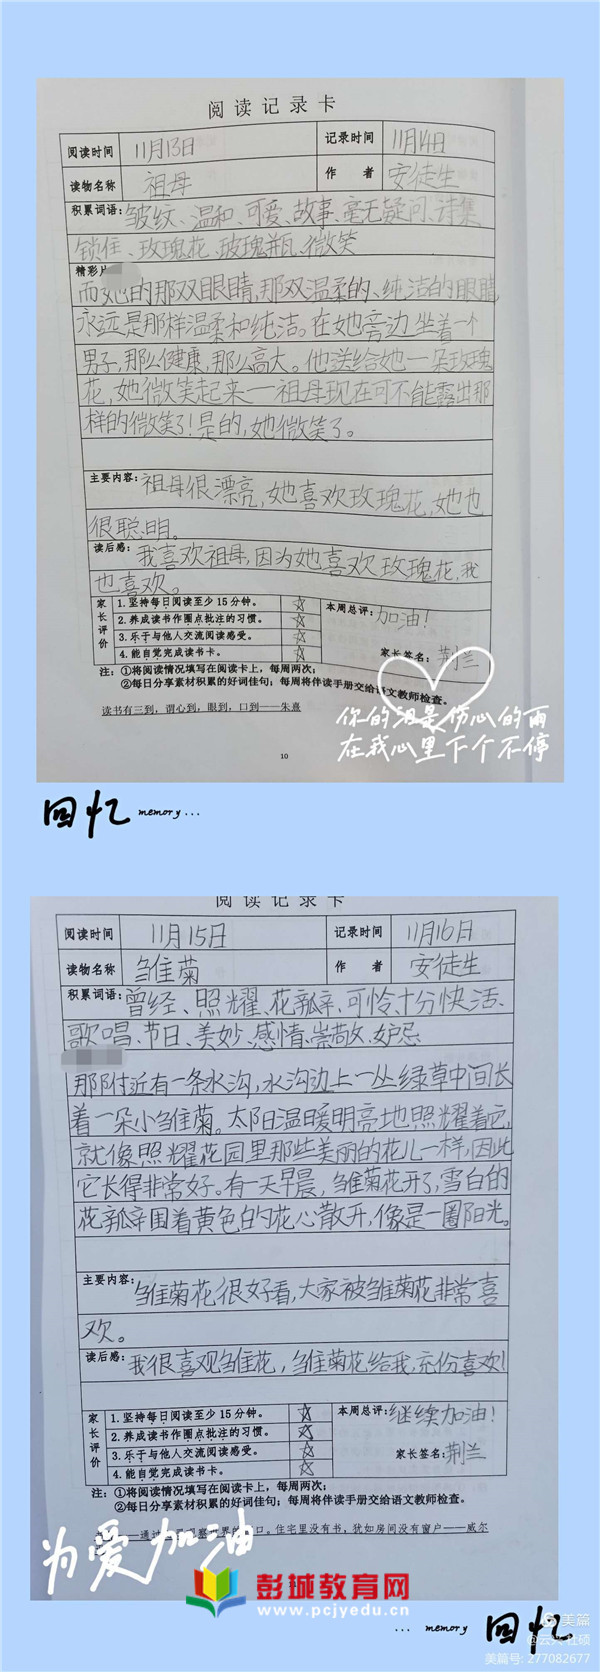 阅读记录卡
阅读时间 11月13日 记录时间 11月14日
读物名称 祖母 作者 安徒生
积累词语:皱纹、温和、可爱、故事、毫无疑问、诗集、
锁住、玫瑰花、玻瑰瓶、微笑
精彩片
而她的那双眼睛,那双温柔的、纯洁的眼睛
永远是那样温柔和纯洁。在她旁边坐着一个
男子,那么健康,那么高大。他送给她一朵玫瑰
花,她微笑起来—祖母现在可不能露出那
样的微笑了!是的,她微笑了。
主要内容:祖母很漂亮,她喜欢玫瑰花,她也
很聪明。
读后感:我喜欢祖母,因为她喜欢玫瑰花,我
也喜欢。
家长评价
1.坚持每日阅读至少15分钟。 ☆
2.养成读书作圈点批注的习惯。 ☆
3.乐于与他人交流阅读感受。 ☆
4.能自觉完成读书卡。 ☆
本周总评:加油!
家长签名:荆兰
注:①将阅读情况填写在阅读卡上,每周两次;
②每日分享素材积累的好词佳句;每周将伴读手册交给语文教师检查。
读书有三到,谓心到,眼到,口到——朱熹
你的泪是伤心的雨
在我心里下个不停
10
回忆 memory...
阅读记录卡
阅读时间 11月15日 记录时间 11月16日
读物名称 雏菊 作者 安徒生
积累词语:曾经、照耀、花瓣、可怜、十分快活、
歌唱、节日、美妙、感情、崇敬、妒忌
那附近有一条水沟,水沟边上一丛绿草中间长
着一朵小雏菊。太阳温暖明亮地照耀着它,
就像照耀花园里那些美丽的花儿一样,因此
它长得非常好。有一天早晨,雏菊花开了,雪白的
花瓣围着黄色的花心散开,像是一圈阳光。
主要内容:雏菊花很好看,大家被雏菊花非常喜
欢。
读后感:我很喜观雏花,雏菊花给我,充份喜欢!
家长评价
1.坚持每日阅读至少15分钟。 ☆
2.养成读书作圈点批注的习惯。 ☆
3.乐于与他人交流阅读感受。 ☆
4.能自觉完成读书卡。 ☆
本周总评:继续加油!
家长签名:荆兰
注:①将阅读情况填写在阅读卡上,每周两次;
②每日分享素材积累的好词佳句;每周将伴读手册交给语文教师检查。
口。住宅里没有书,犹如房间没有窗户——威尔
为爱加油
彭城教育网
www.pcjyedu.cn
美篇
... memory 回忆
美篇号:277082677